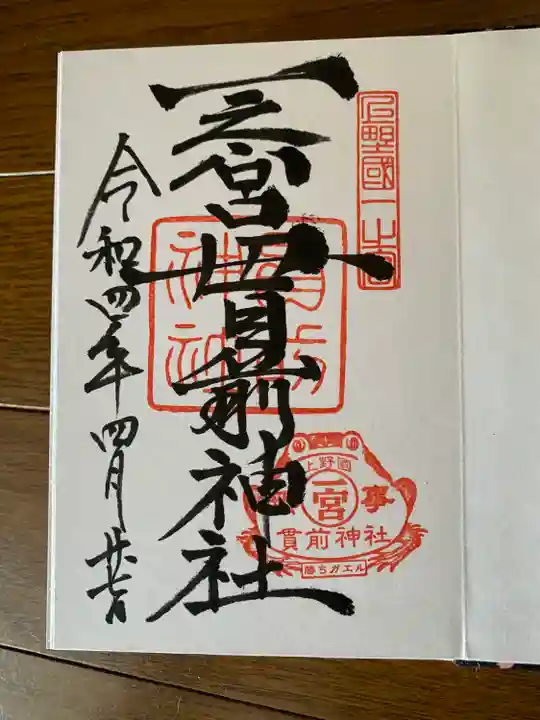 上野國一之宮
一之宮貫前神社
令和四年四月廿七日
上野國
一宮
事
貫前神社
勝ちガエル